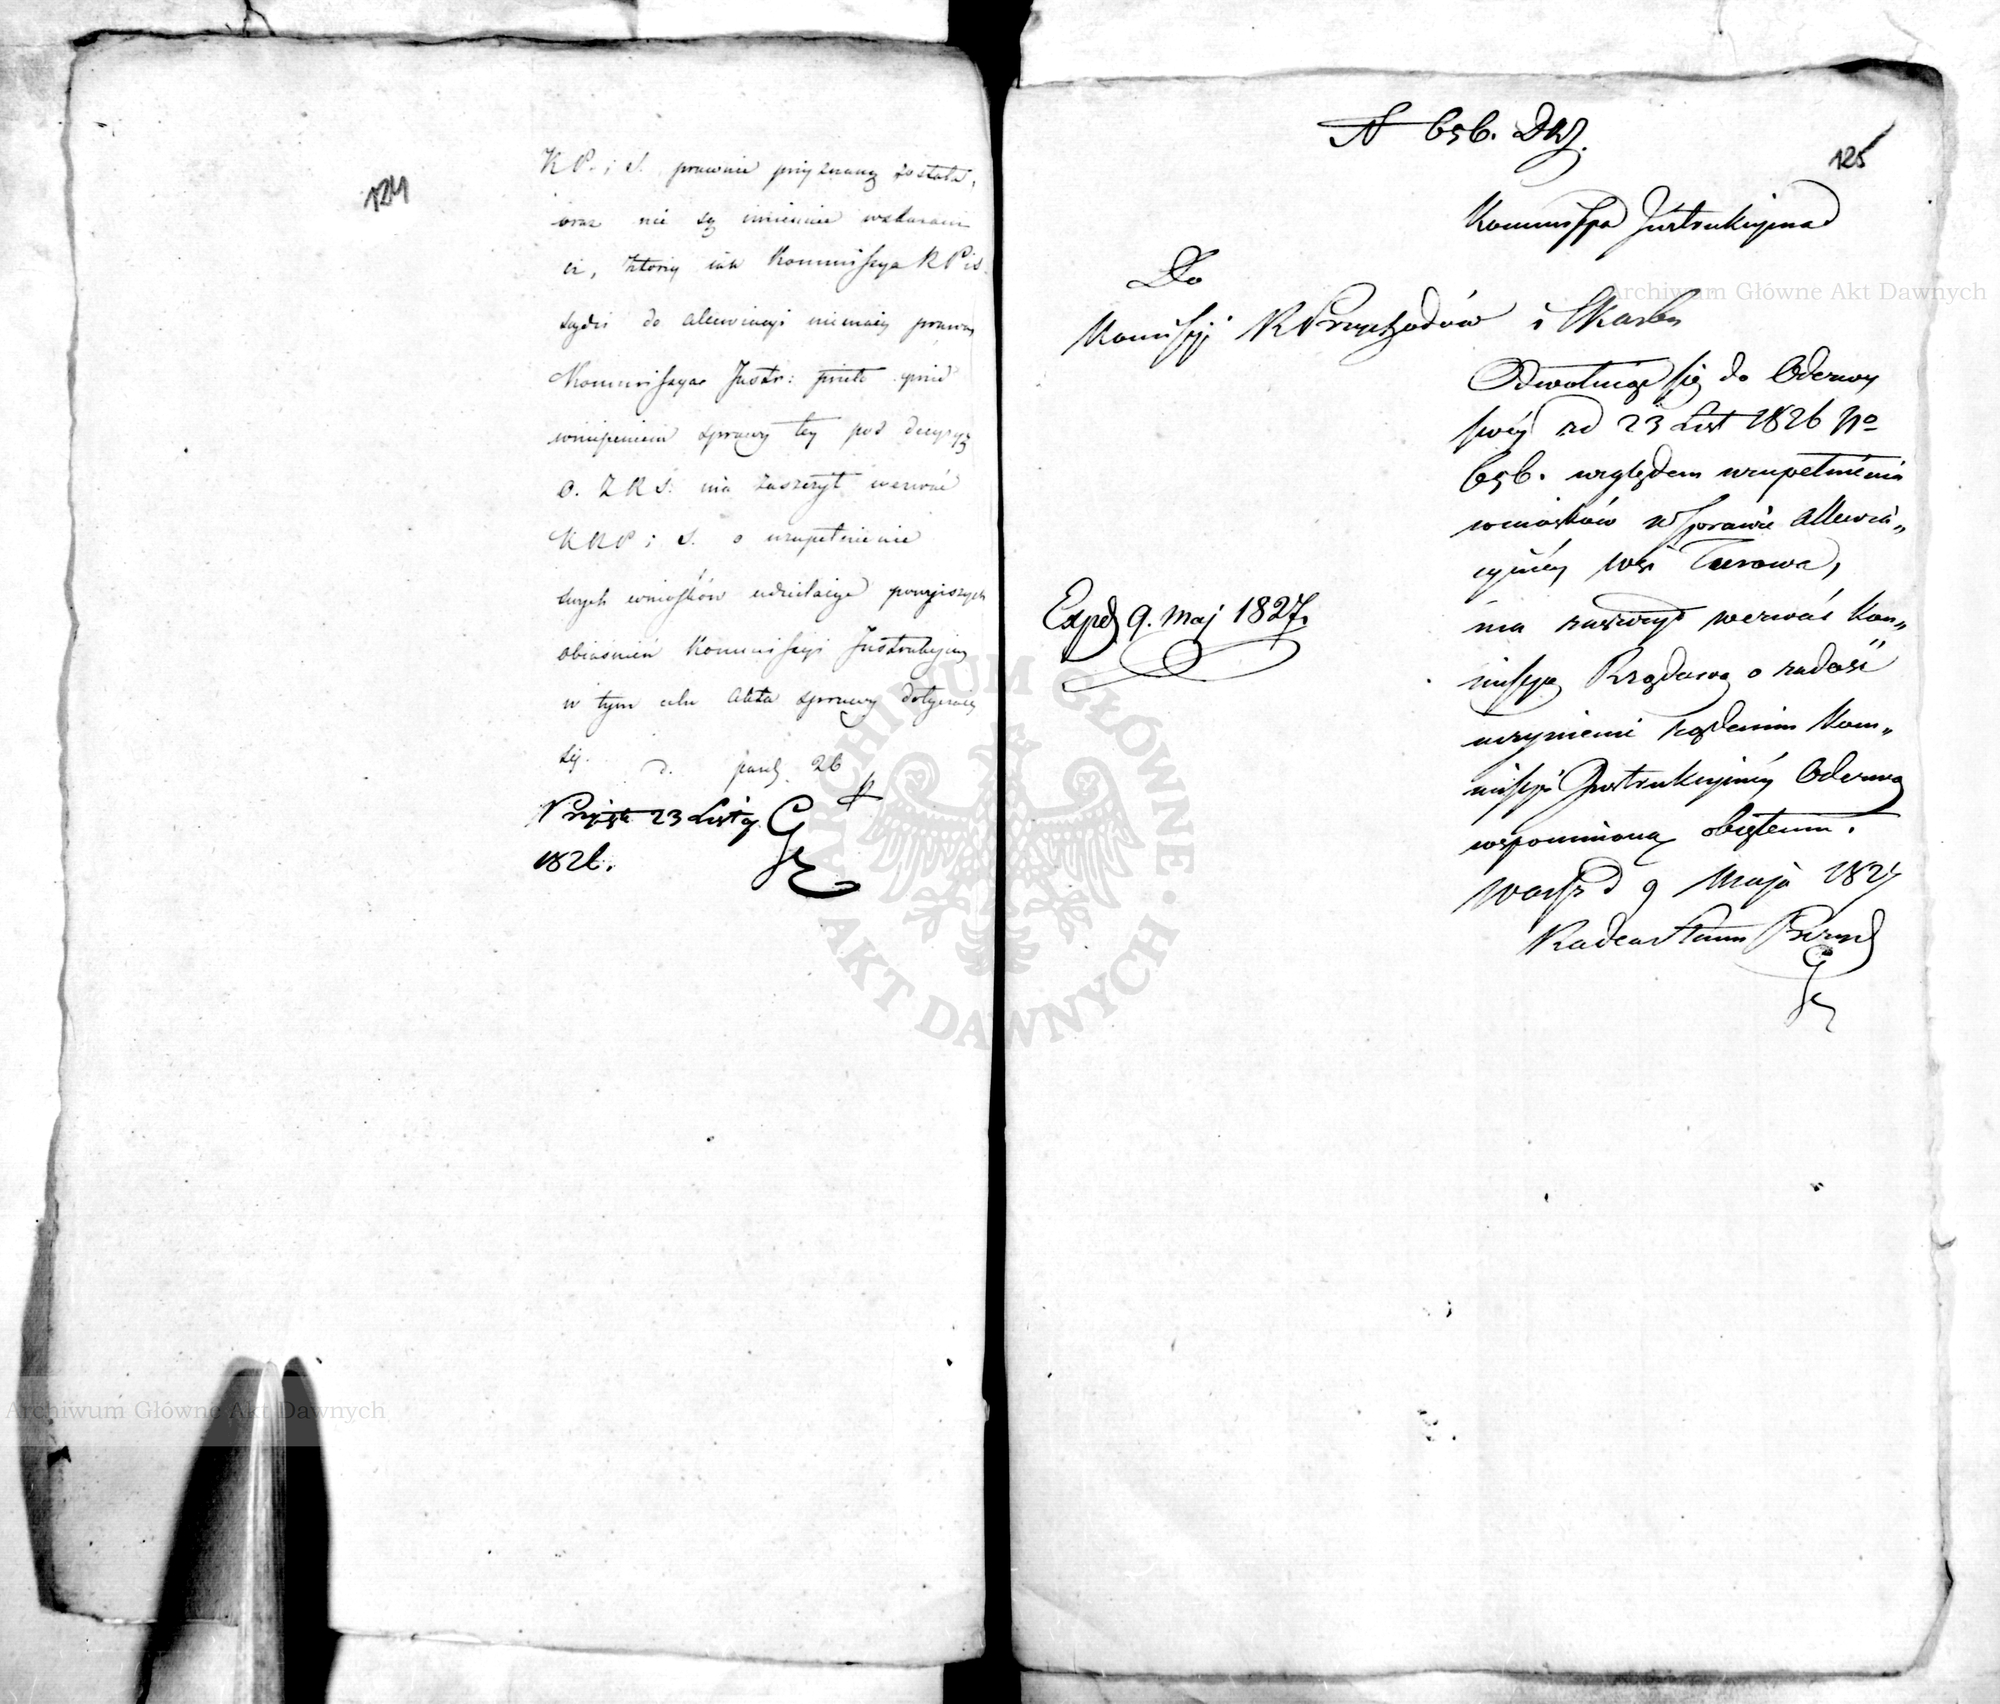 124
K P. i S. prawnie przyznaną została,
oraz nie są imiennie wskazani
ci, którzy iak Kommissya R P i S.
sądzi do alewiacyi niemaią prawa,
Kommissya Instr: przeto przed
wniesieniem sprawy tey pod decyzyą
O. Z K S. ma zaszczyt wezwać
K R P i S. o uzupełnienie
swych wniosków udzielaiąc powyższych
obiaśnień Kommissyi Instrukcyiney
w tym celu Akta sprawy dotyczące
się. d. 26
23 Listop.
1826.
125
N 656.
Kommissya Instrukcyina
Do
Komissyi R Przychodów i Skarbu
Odwołuiąc się do Odezwy
swéy z d 23 List 1826 No
656. względem uzupełnienia
wniosków w sprawie Allewia„
cyinéy wsi Turowa,
ma zaszczyt wezwać Kom„
missyą Rządową o zadość
uczynienie żądaniom Kom„
missyi Instrukcyinéy Odezwą
wspomnioną obiętem.
Warsz d 9 Maja 1827
Radca Stanu Prezyd
Exped 9. Maj 1827.
Archiwum Główne Akt Dawnych
Archiwum Główne Akt Dawnych
ARCHIWUM GŁÓWNE AKT DAWNYCH